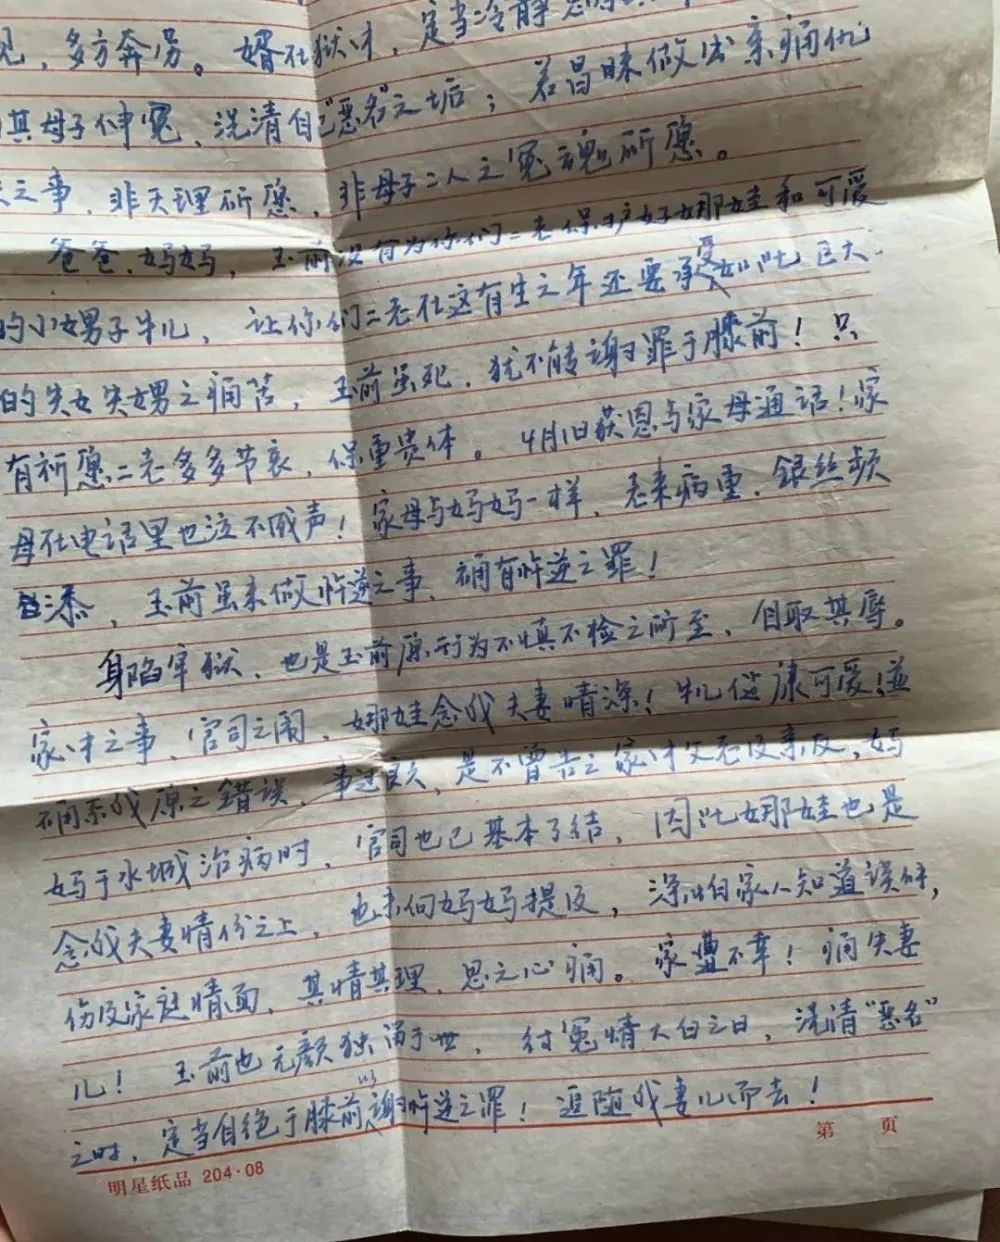 见，多方奔劳。婿在狱中，定当冷静
其母子伸冤，洗清自己"恶名"之垢；若冒昧做出亲痛仇
之事，非天理所愿，非母子二人之冤魂所愿。
爸爸、妈妈，玉前没有为你们二老保护好娜娃和可爱
的小甥子牛儿，让你们二老在这有生之年还要承受如此巨大
的失女失甥之痛苦，玉前虽死，犹不能谢罪于膝前！只
有祈愿二老多多节哀，保重贵体。4月1日获恩与家母通话！家
母在电话里也泣不成声！家母与妈妈一样，老来病重，银丝频
添，玉前虽未做忤逆之事，确有忤逆之罪！
身陷牢狱，也是玉前原行为不慎不检之所至，自取其辱。
家中之事，官司之闹，娜娃念我夫妻情深！牛儿健康可爱！这
确系我原之错误，事过良久，是不曾告之家中父老及亲友，妈
妈于水城治病时，官司也已基本了结，因此娜娃也是
念我夫妻情份之上，也未向妈妈提及，深怕家人知道误解，
伤及家庭情面，其情其理，思之心痛。家遭不幸！痛失妻
儿！玉前也无颜独活于世，待冤情大白之日，洗清"恶名"
之时，定当自绝于膝前以谢忤逆之罪！追随我妻儿而去！
第 页
明星纸品 204·08